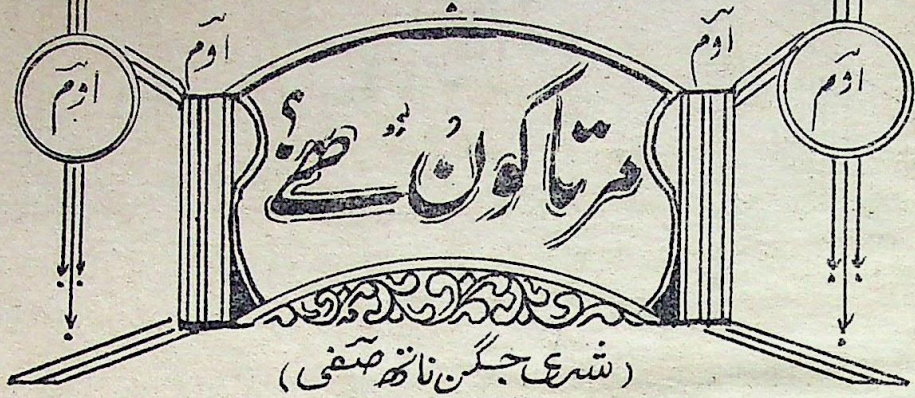 اوم
اوم
اوم
اوم
مرتا کون ھے؟
(شری جگن ناتھ صفی)